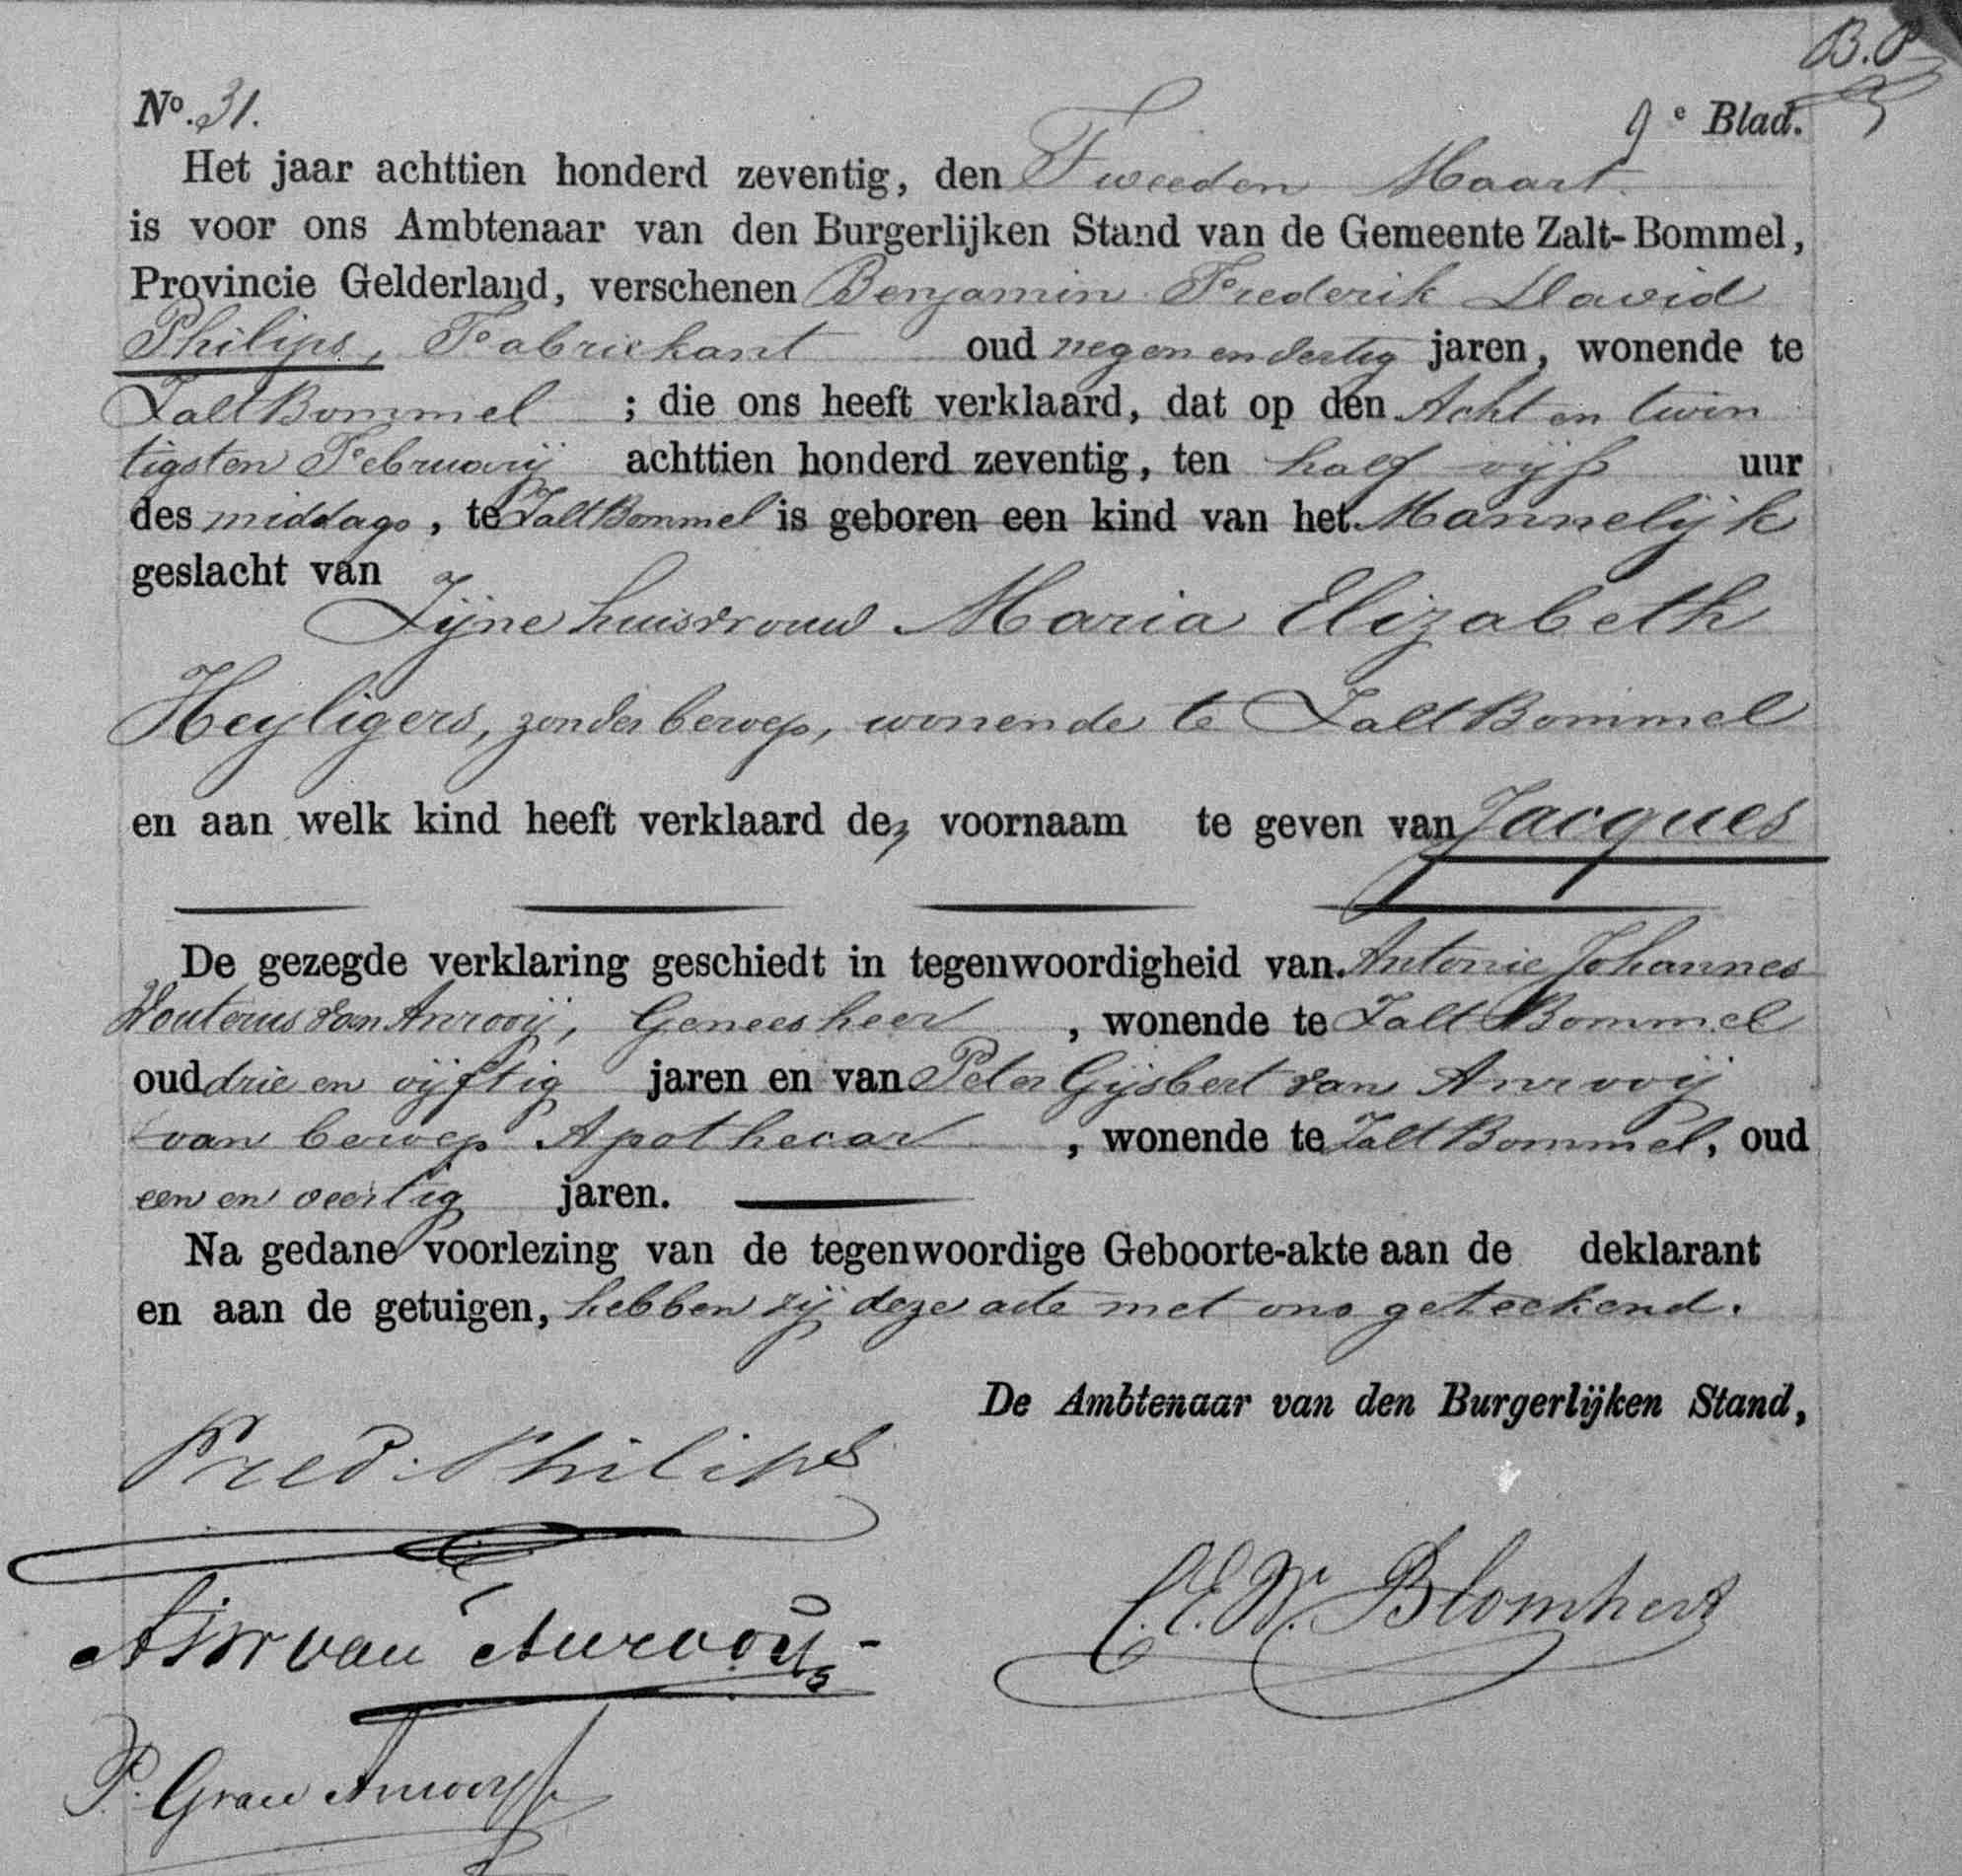 B.P.
No. 31.
9e Blad.
Het jaar achttien honderd zeventig, den Tweeden Maart
is voor ons Ambtenaar van den Burgerlijken Stand van de Gemeente Zalt-Bommel,
Provincie Gelderland, verschenen Benjamin Frederik David
Philips, Fabriekant oud negen en dertig jaren, wonende te
ZaltBommel ; die ons heeft verklaard, dat op den Acht en twin
tigsten Februarij achttien honderd zeventig, ten half vijf uur
des middags, te ZaltBommel is geboren een kind van het Mannelijk
geslacht van
Zijne huisvrouw Maria Elizabeth
Heyligers, zonder beroep, wonende te ZaltBommel
en aan welk kind heeft verklaard den voornaam te geven van Jacques
De gezegde verklaring geschiedt in tegenwoordigheid van Antonie Johannes
Wouterus van Anrooij, Geneesheer , wonende te Zalt Bommel
oud drie en vijftig jaren en van Peter Gijsbert van Anrooij
van beroep Apothecar , wonende te ZaltBommel, oud
een en veertig jaren.
Na gedane voorlezing van de tegenwoordige Geboorte-akte aan de deklarant
en aan de getuigen, hebben zij deze acte met ons geteekend.
De Ambtenaar van den Burgerlijken Stand,
Fred. Philips
AJW van Anrooij
C.E.W. Blomhert
P. G van Anrooij